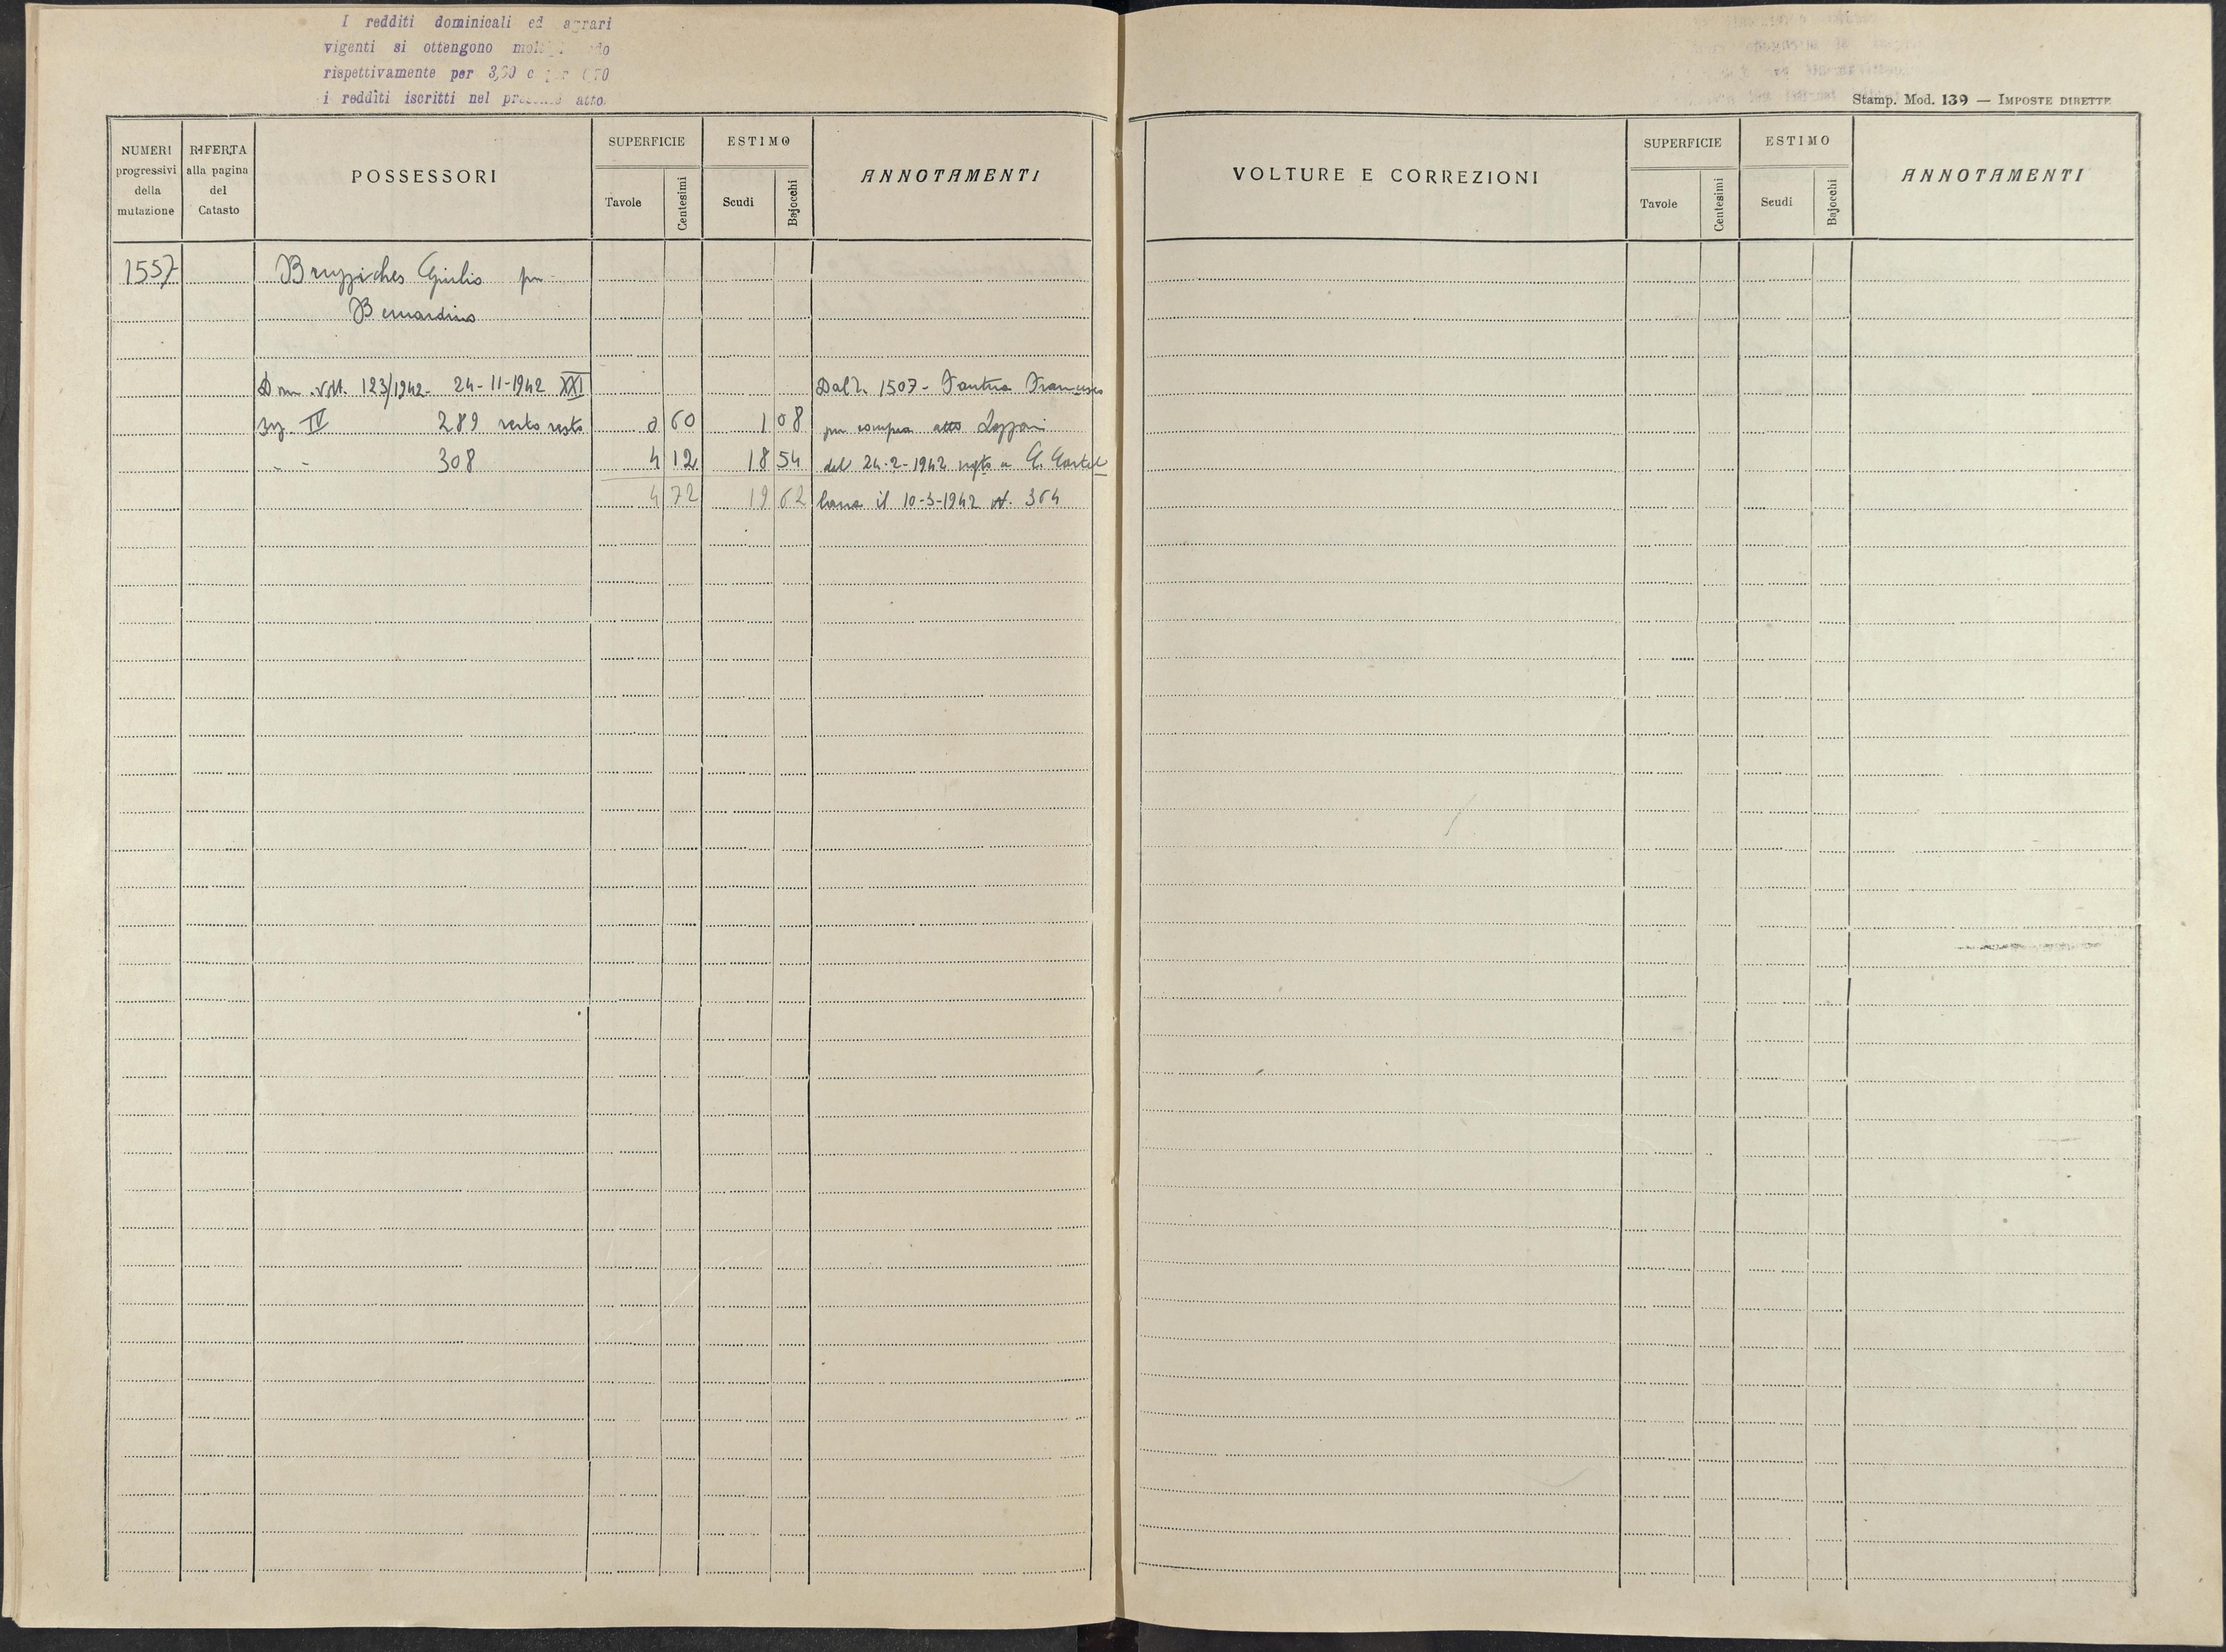 I redditi dominicali ed agrari
vigenti si ottengono
rispettivamente per 3,
i redditi iscritti nel atto.
Stamp. Mod. 139 — IMPOSTE DIRETTE
NUMERI progressivi della mutazione
RIFERTA alla pagina del Catasto
POSSESSORI
SUPERFICIE
Tavole
Centesimi
ESTIMO
Scudi
Bajocchi
ANNOTAMENTI
VOLTURE E CORREZIONI
SUPERFICIE
Tavole
Centesimi
ESTIMO
Scudi
Bajocchi
ANNOTAMENTI
1557 Bruzziches Giulio fu
Bernardino
Dom. Volt. 123/1942 - 24-11-1942 XXI Dal N. 1507 - Francesco
IV 289 resto resto 0 60 1 08 per compra atto Lozzani
" " 308 4 12 18 54 del 24-2-1942 regto a C. Castel
4 72 19 62 lana il 10-3-1942 N. 364